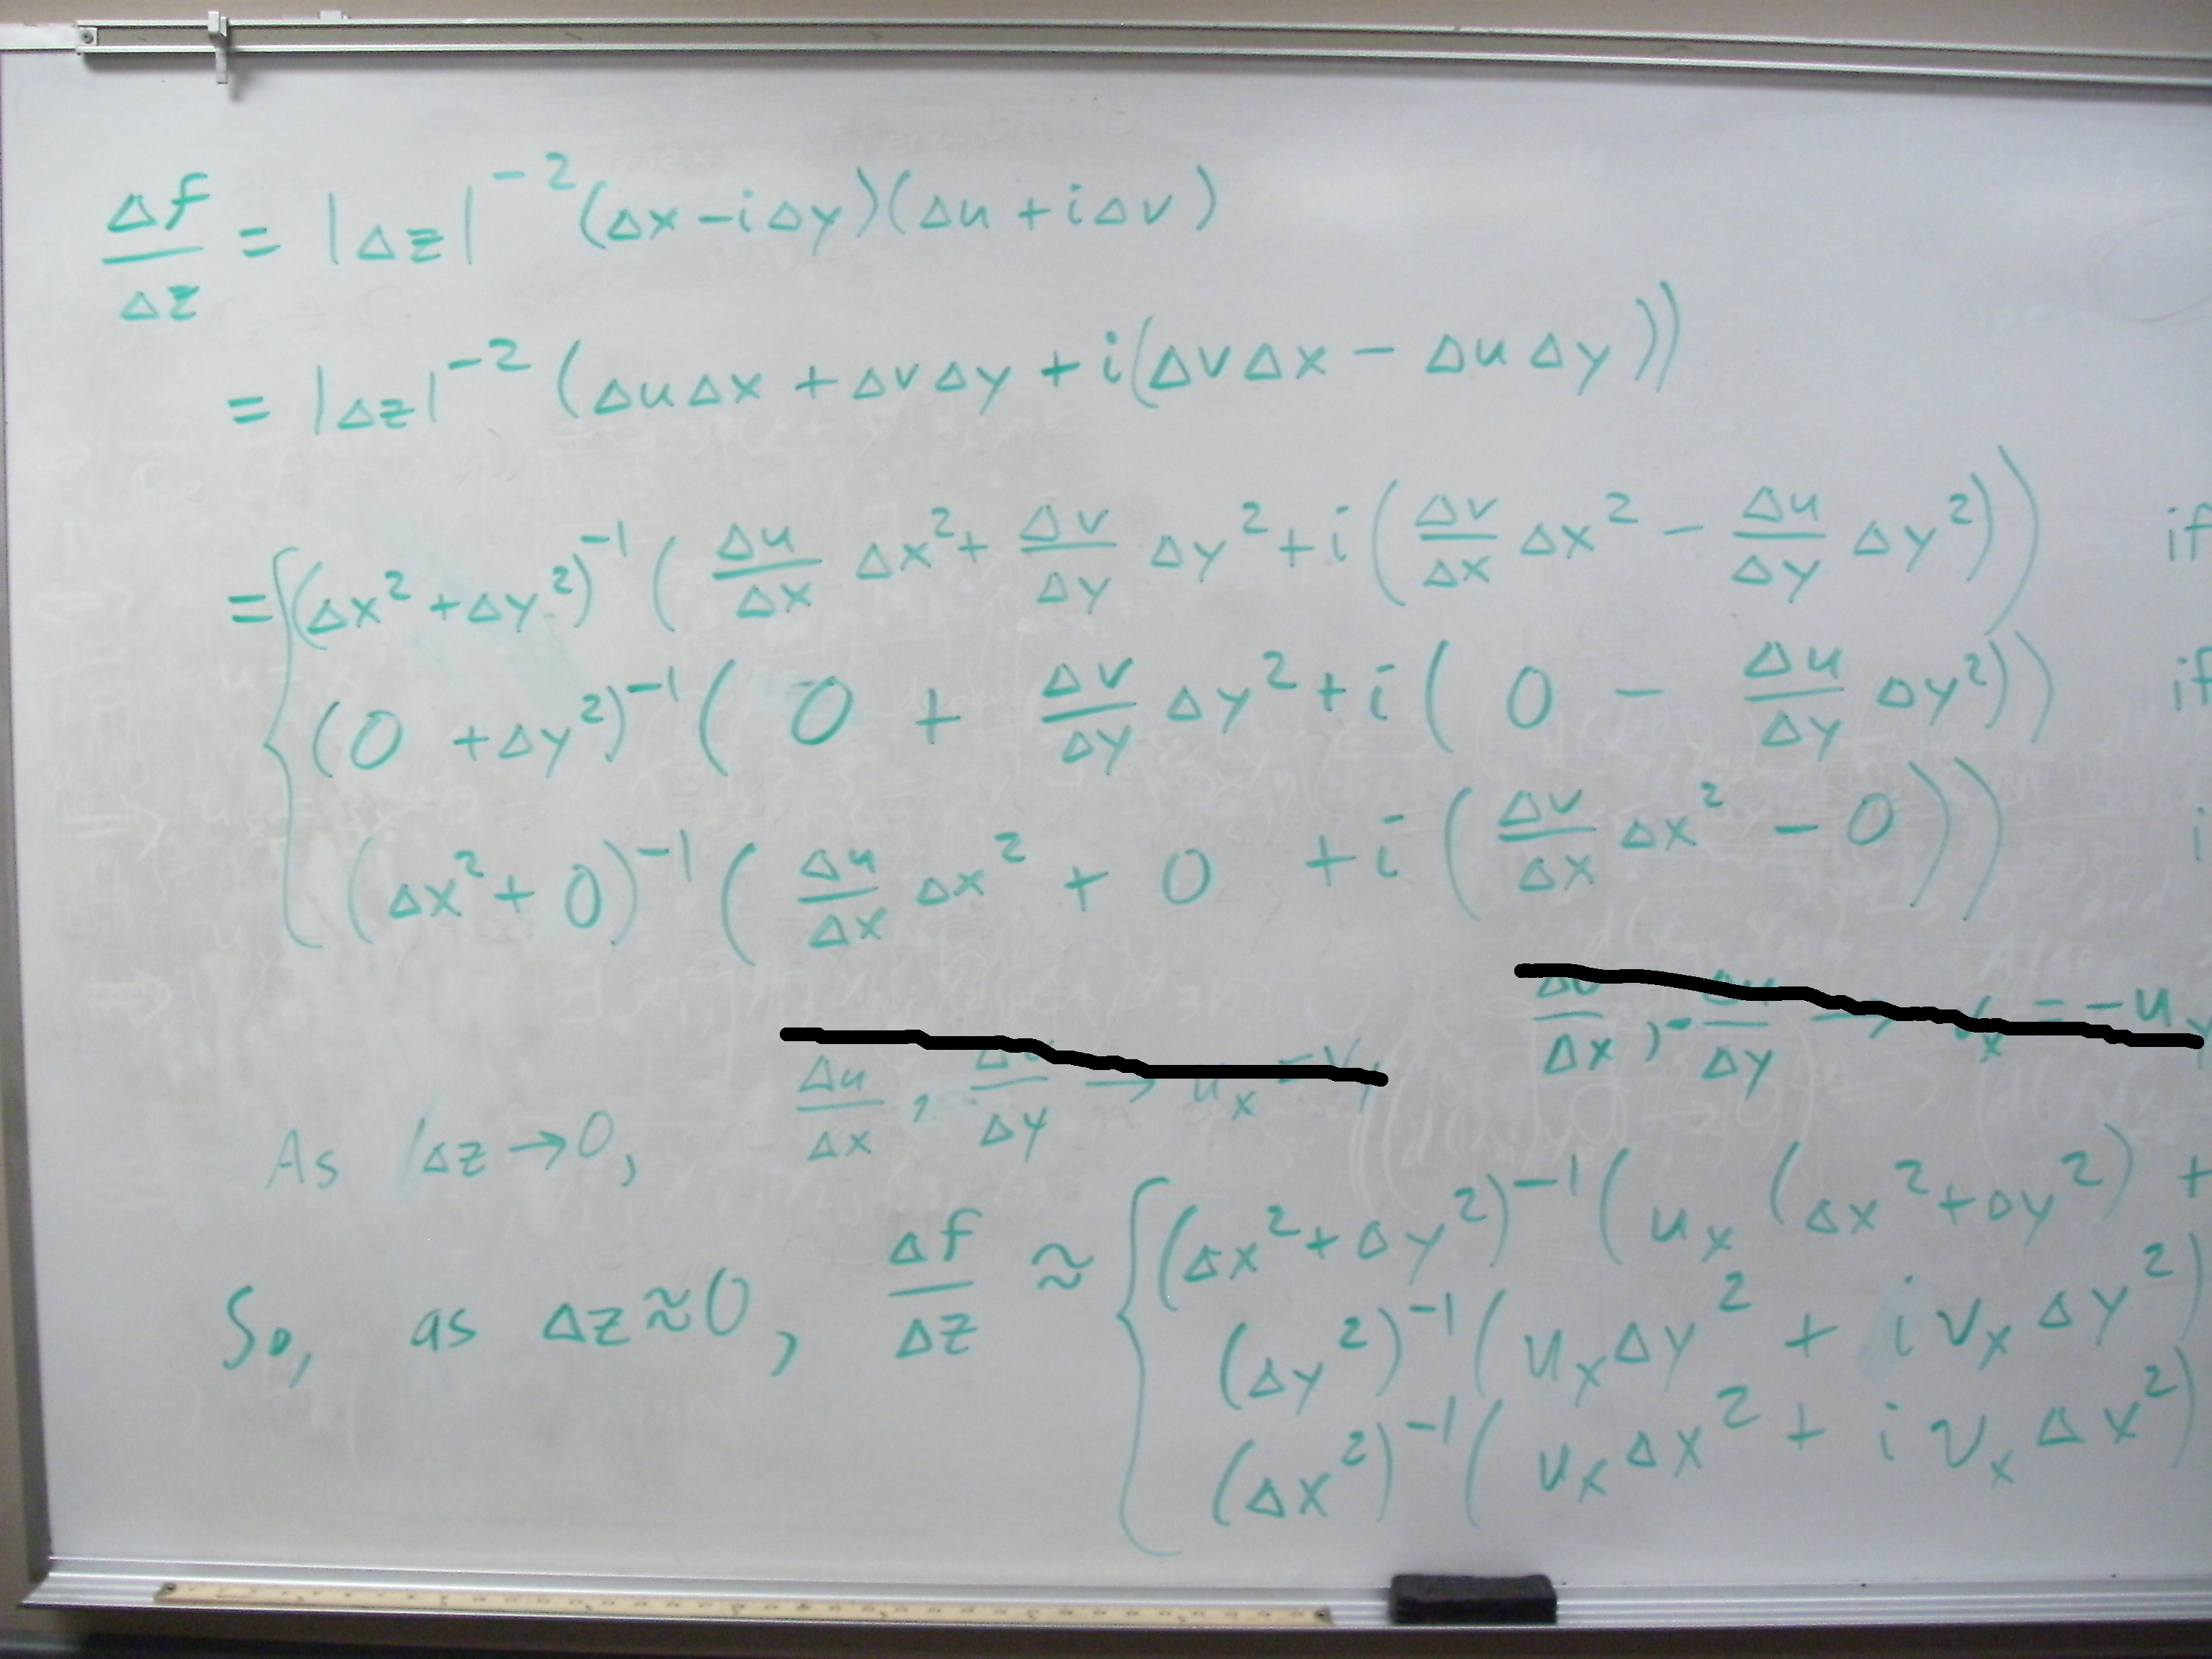 Δf/Δz = |Δz|⁻²(Δx-iΔy)(Δu+iΔv)
= |Δz|⁻² (ΔuΔx + ΔvΔy + i(ΔvΔx - ΔuΔy))
= { (Δx² + Δy²)⁻¹ ( Δu/Δx Δx² + Δv/Δy Δy² + i ( Δv/Δx Δx² - Δu/Δy Δy² ) ) if
(0 + Δy²)⁻¹ ( 0 + Δv/Δy Δy² + i ( 0 - Δu/Δy Δy² ) ) if
(Δx² + 0)⁻¹ ( Δu/Δx Δx² + 0 + i ( Δv/Δx Δx² - 0 ) )
As Δz → 0,
So, as Δz ≈ 0, Δf/Δz ≈ { (Δx² + Δy²)⁻¹ ( uₓ (Δx² + Δy²) +
(Δy²)⁻¹ ( uₓ Δy² + i vₓ Δy² )
(Δx²)⁻¹ ( uₓ Δx² + i vₓ Δx² )